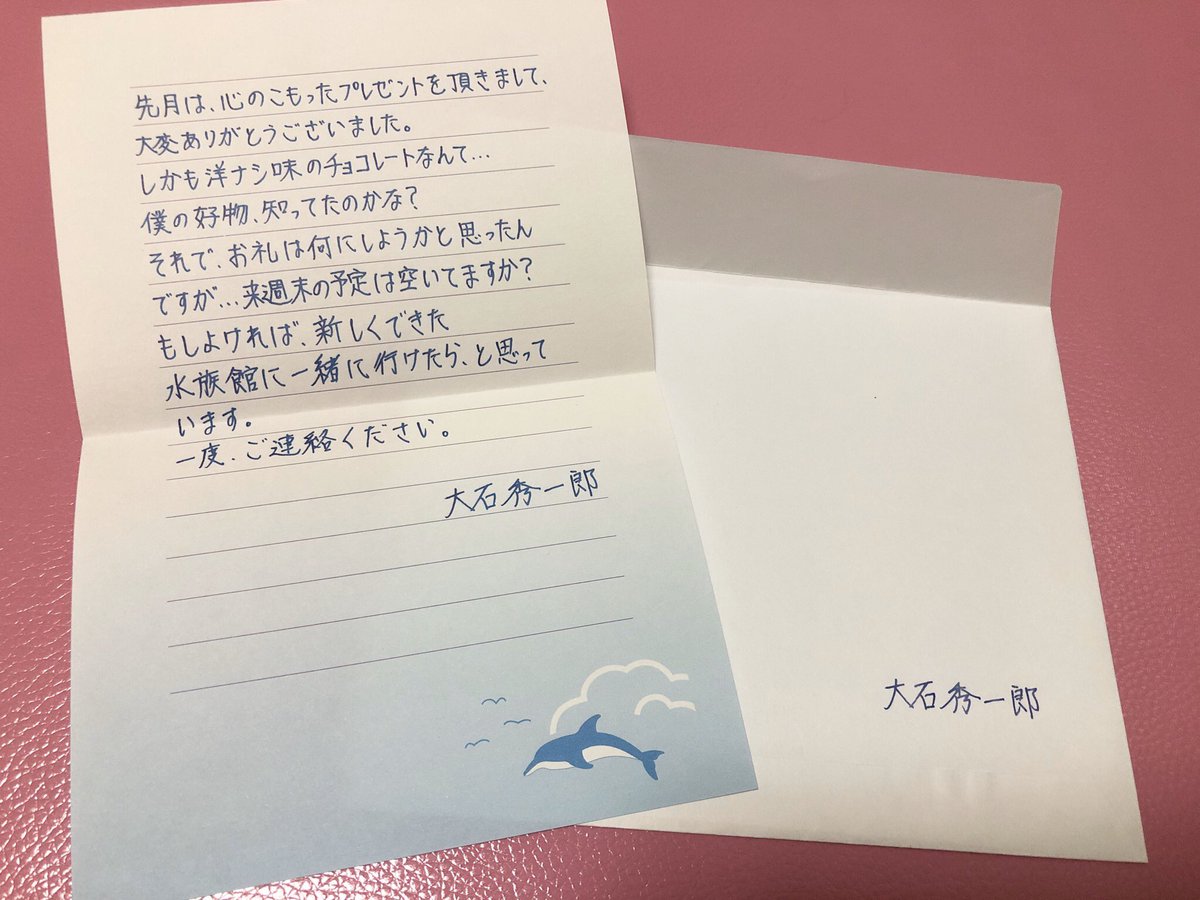 先月は、心のこもったプレゼントを頂きまして、
大変ありがとうございました。
しかも洋ナシ味のチョコレートなんて…
僕の好物、知ってたのかな？
それで、お礼は何にしようかと思ったん
ですが…来週末の予定は空いてますか？
もしよければ、新しくできた
水族館に一緒に行けたら、と思って
います。
一度、ご連絡ください。
大石秀一郎
大石秀一郎